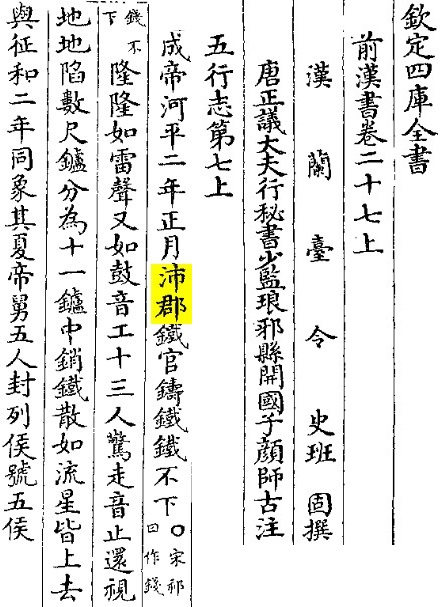 欽定四庫全書
前漢書卷二十七上
漢蘭臺令史班固撰
唐正議大夫行秘書少監琅邪縣開國子顏師古注
五行志第七上
成帝河平二年正月沛郡鐵官鑄鐵鐵不下○宋祁曰作錢
錢不下隆隆如雷聲又如鼓音工十三人驚走音止還視
地地陷數尺鑪分為十一鑪中銷鐵散如流星皆上去
與征和二年同象其夏帝舅五人封列侯號五侯